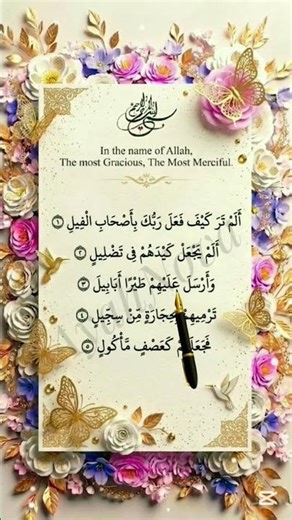 بسم الله الرحمن الرحيم
In the name of Allah,
The most Gracious, The Most Merciful.
أَلَمْ تَرَ كَيْفَ فَعَلَ رَبُّكَ بِأَصْحَابِ الْفِيلِ ١
أَلَمْ يَجْعَلْ كَيْدَهُمْ فِي تَضْلِيلٍ ٢
وَأَرْسَلَ عَلَيْهِمْ طَيْرًا أَبَابِيلَ ٣
تَرْمِيهِم بِحِجَارَةٍ مِّنْ سِجِّيلٍ ٤
كَعَصْفٍ مَّأْكُولٍ ٥